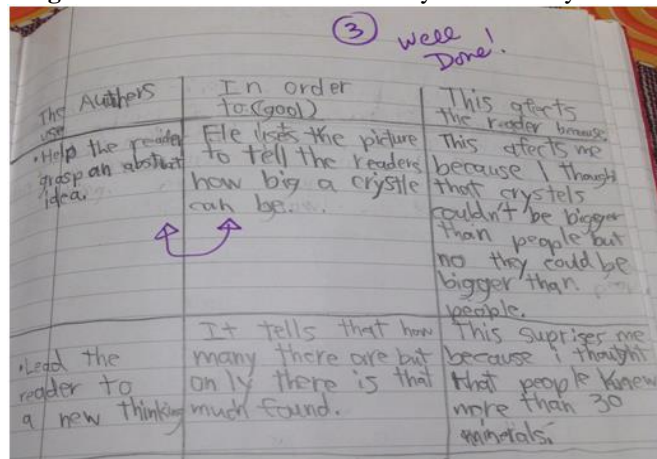 ③ well
Done!
The Authers
use
In order
to:(gool)
This afects
the reader because.
•Help the reader
grasp an abstract
idea.
He uses the picture
to tell the readers
how big a crystle
can be.
This afects me
because I thought
that crystels
couldn't be bigger
than people but
no they could be
bigger than
people.
•Lead the
reader to
a new thinking
It tells that how
many there are but
only there is that
much found.
This suprises me
because i thought
that people knew
more than 30
minerals.